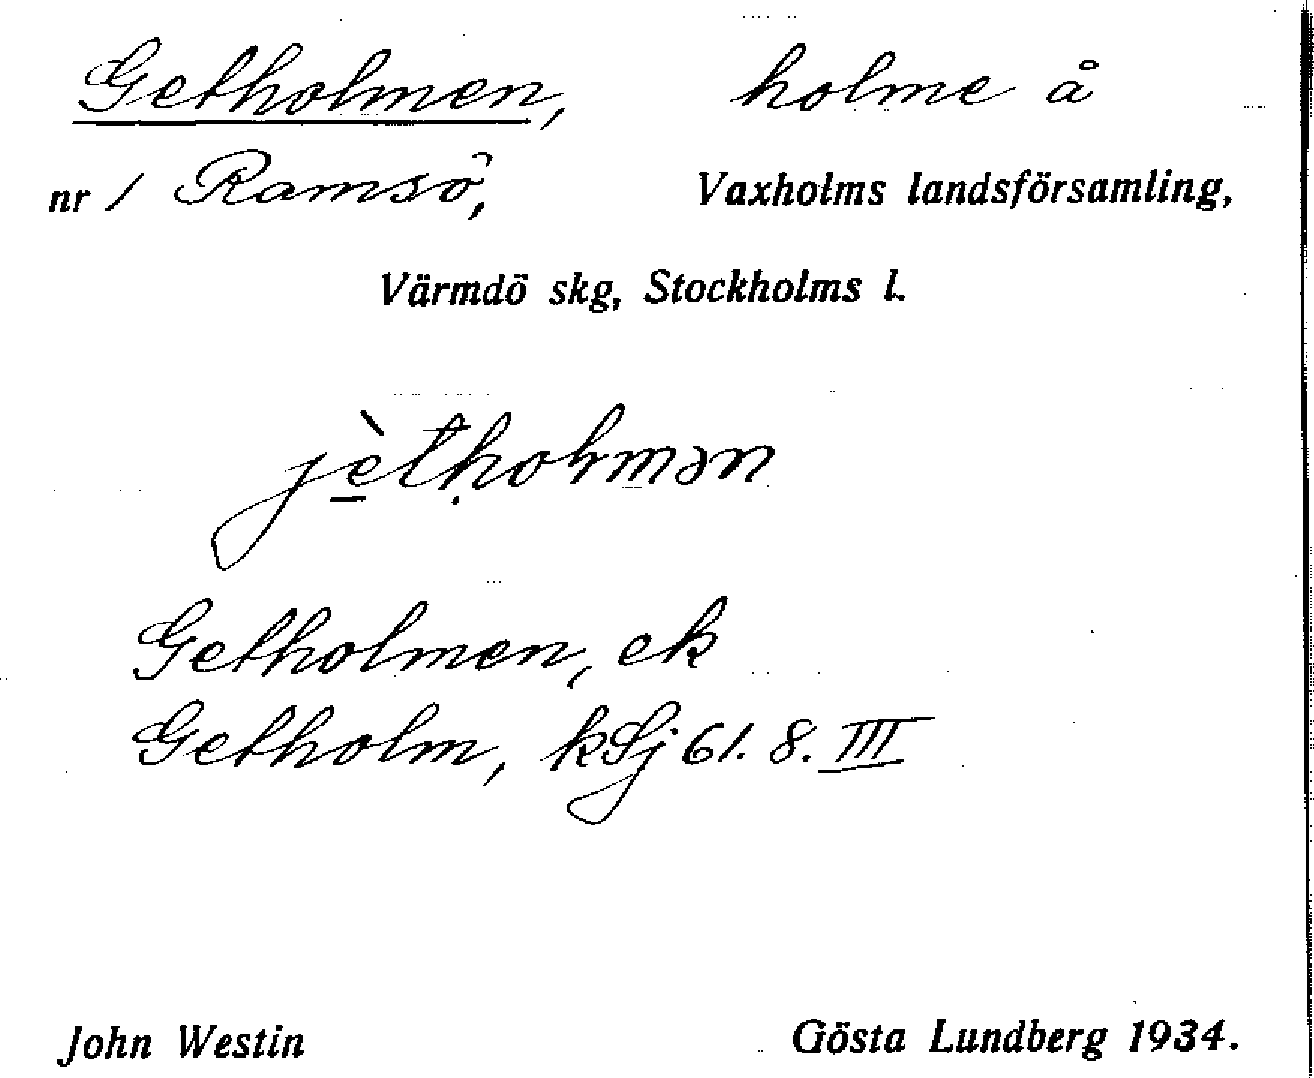 Getholmen, holme å
nr 1 Ramsö, Vaxholms landsförsamling,
Värmdö skg, Stockholms l.
jè̠tḥoɫmən
Getholmen, ek
Getholm, kSj 61. 8. III
John Westin Gösta Lundberg 1934.